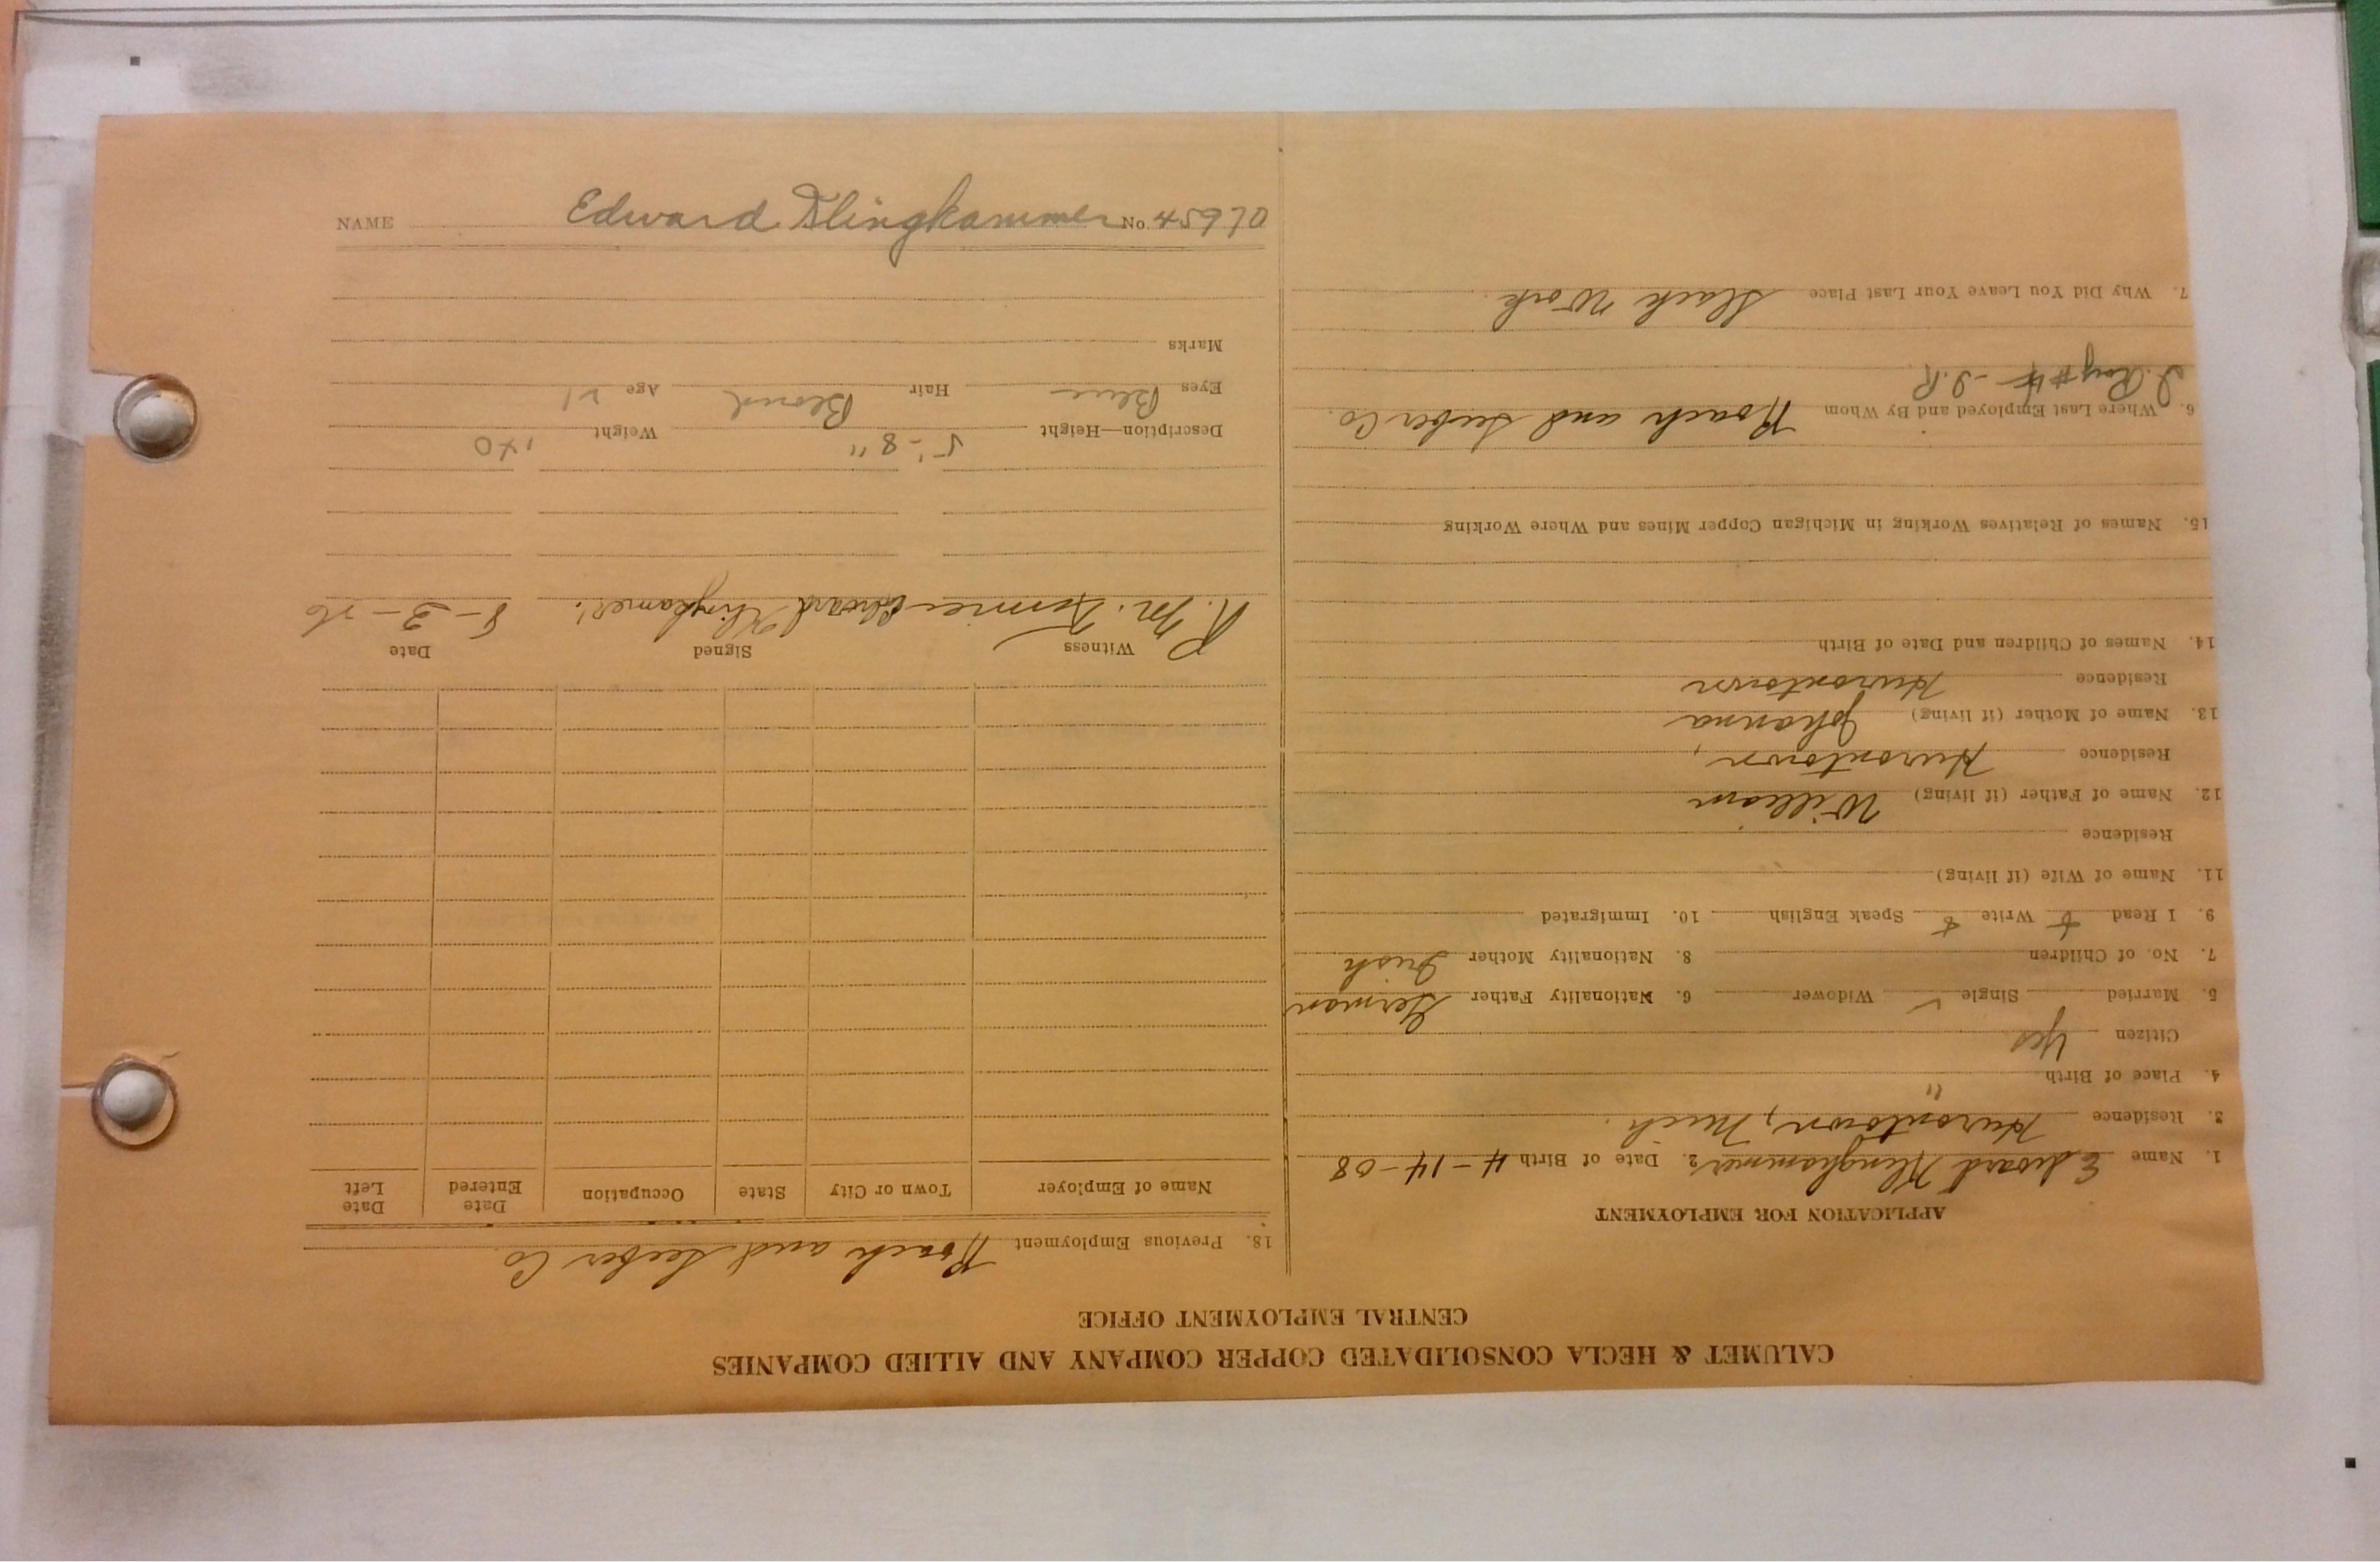 CALUMET & HECLA CONSOLIDATED COPPER COMPANY AND ALLIED COMPANIES
CENTRAL EMPLOYMENT OFFICE
APPLICATION FOR EMPLOYMENT
1. Name Edward Klinghammer 2. Date of Birth 4-14-08
3. Residence Hurontown, Mich.
4. Place of Birth "
Citizen Yes
5. Married Single ✓ Widower 6. Nationality Father German
7. No. of Children 8. Nationality Mother Irish
9. I Read Write Speak English 10. Immigrated
11. Name of Wife (if living)
Residence
12. Name of Father (if living) William
Residence Hurontown,
13. Name of Mother (if living) Johanna
Residence Hurontown
14. Names of Children and Date of Birth
15. Names of Relatives Working in Michigan Copper Mines and Where Working
6. Where Last Employed and By Whom Roach and Seeber Co.
7. Why Did You Leave Your Last Place Slack Work
18. Previous Employment Roach and Seeber Co
Name of Employer Town or City State Occupation Date Entered Date Left
Witness Signed Date
R. M. Edward Klinghamer.
Description—Height 5'-8" Weight
Eyes Blue Hair Blond Age 21
Marks
NAME Edward Klingkammer No. 45970